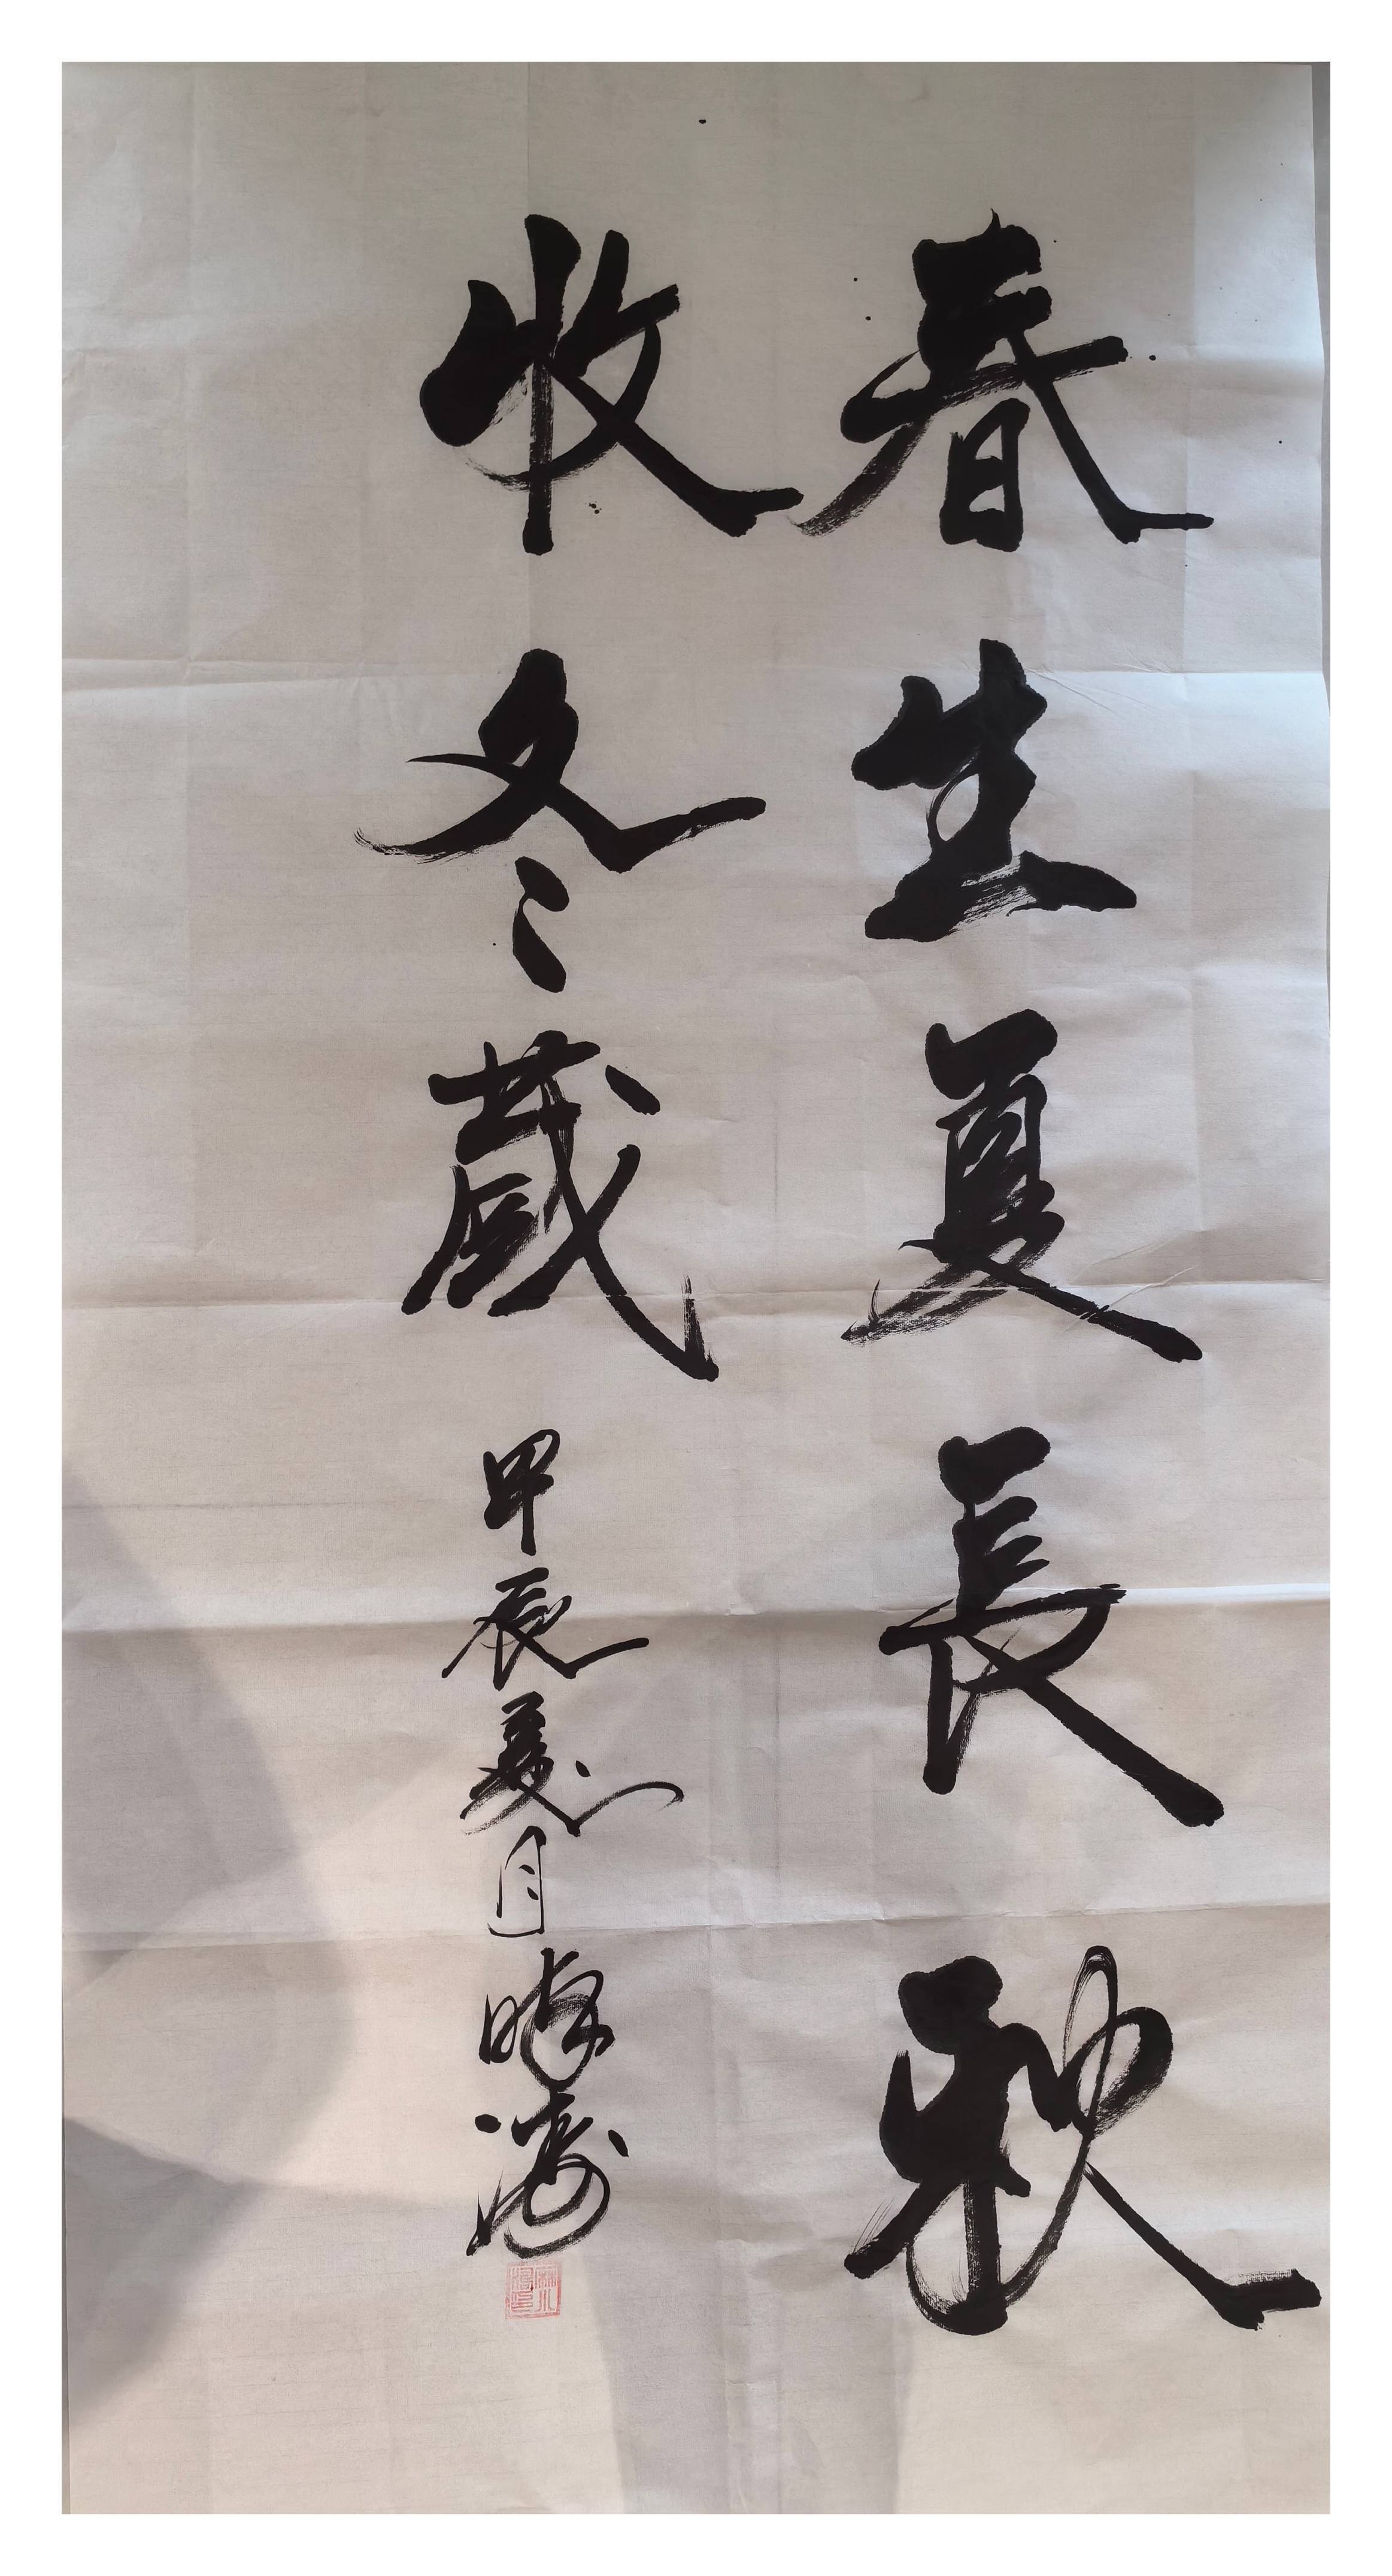 春生夏長秋
收冬藏
甲辰夏月曉濤